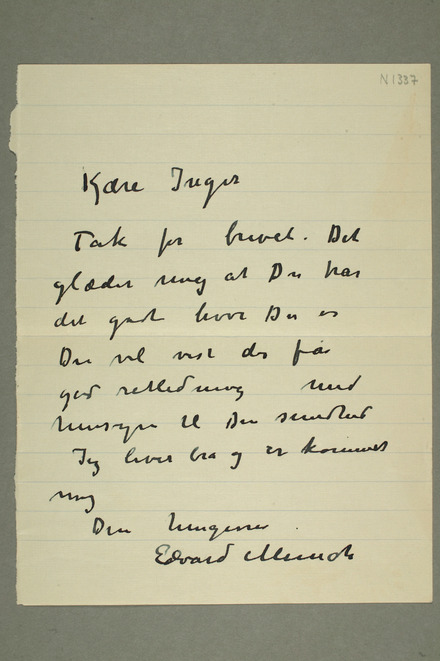 N1337
Kjære Inger
Tak for brevet. Det
glæder mig at Du har
det godt hvor Du er
Du vil vist der få
god veiledning med
hensyn til Din sundhed
Jeg lever bra og er kommet
mig
Din hengivne
Edvard Munch